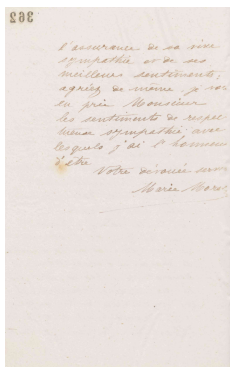 362
l'assurance de sa vive
sympathie et de ses
meilleurs sentiments;
agréez de même, je vous
en prie Monsieur
les sentiments de respec
tueuse sympathie avec
lesquels j'ai l'honneur
d'être
Votre dévouée
Marie